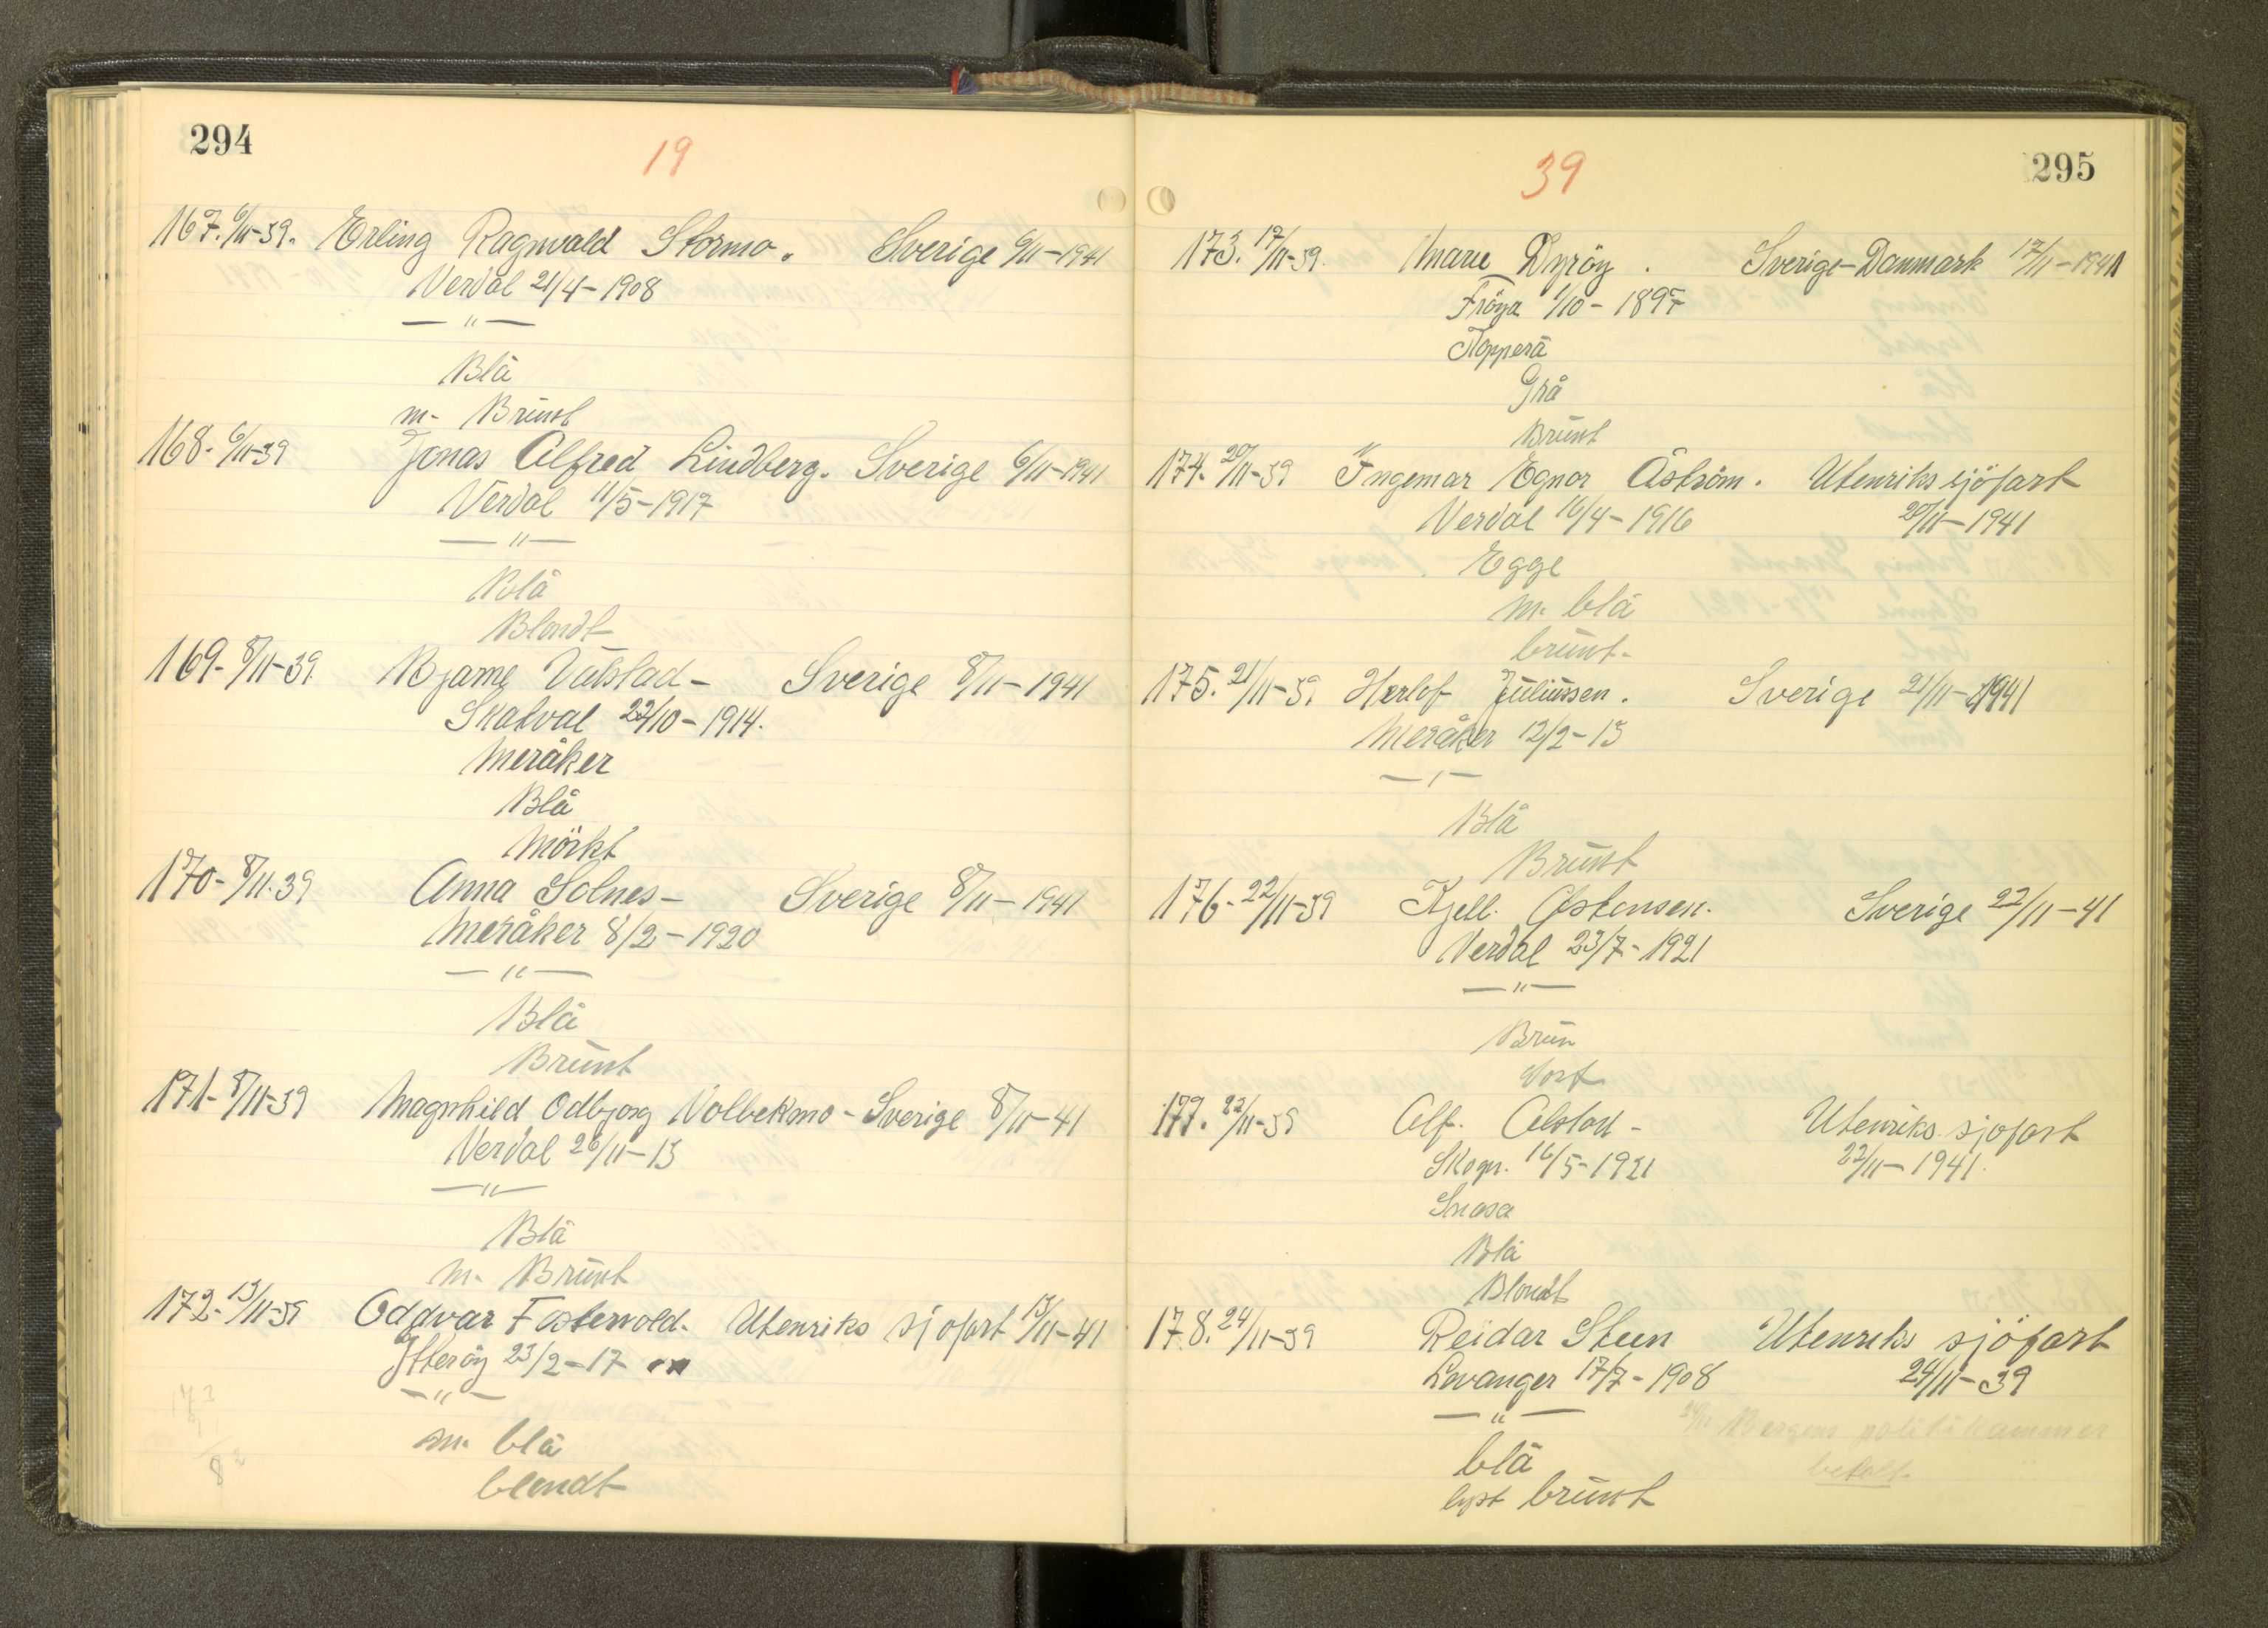 294
19
167. 6/11-39. Erling Ragnvald Stormo. Sverige 6/11-1941
Verdal 21/4-1908
— " —
Blå
m- Brunt
168. 6/11-39 Jonas Alfred Lindberg. Sverige 6/11-1941
Verdal 11/5-1917
— " —
Blå
Blondt
169- 8/11-39. Bjarne - Sverige 8/11-1941
Skatval 22/10-1914.
Meråker
Blå
Mörkt
170- 8/11.39 Anna Solnes- Sverige 8/11-1941
Meråker 8/2-1920
— " —
Blå
Brunt
171- 8/11-39 Magnhild Odbjorg Volbekmo - Sverige 8/11-41
Verdal 26/11-13
— " —
Blå
m. Brunt
172- 13/11-39 Oddvar Fostervold. Utenriks sjofart 13/11-41
Ytteröy 23/2-17
— " —
m. blå
blondt
295
39
173. 17/11-39. Dyröy. Sverige-Danmark 17/11-1941
Fröya 1/10-1897
Kopperå
Grå
Brunt
174. 20/11-39 Ingemar Egnor Åström. Utenriks sjöfart
Verdal 16/4-1916 20/11-1941
Egge
m. blå
brunt-
175. 21/11-39. Herlof Juliussen. Sverige 21/11-1941
Meråker 12/2-13
— ' —
Blå
Brunt
176- 22/11-39 Kjell. Østensen. Sverige 22/11-41
Verdal 23/7-1921
— " —
Brun
Sort
177. 22/11-39 Alf. Alstad - Utenriks sjofart
Skogn. 16/5-1921 22/11-1941.
Snåsa
Blå
Blondt
178. 24/11-39 Reidar Steen Utenriks sjöfart
Levanger 17/7-1908 24/11-39
— " — Bergens politikammer
blå betalt.
lyst brunt